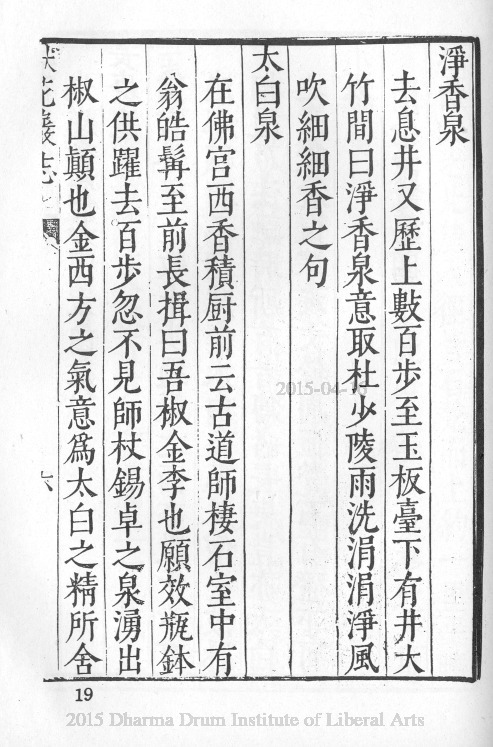 淨香泉
去息井又歷上數百步至玉板臺下有井大
竹間曰淨香泉意取杜少陵雨洗涓涓淨風
吹細細香之句
太白泉
在佛宮西香積厨前云古道師棲石室中有
翁皓髯至前長揖曰吾椒金李也願效瓶鉢
之供躍去百步忽不見師杖錫卓之泉湧出
椒山顛也金西方之氣意爲太白之精所舍
花巖志
六
19
2015-04-10
2015 Dharma Drum Institute of Liberal Arts